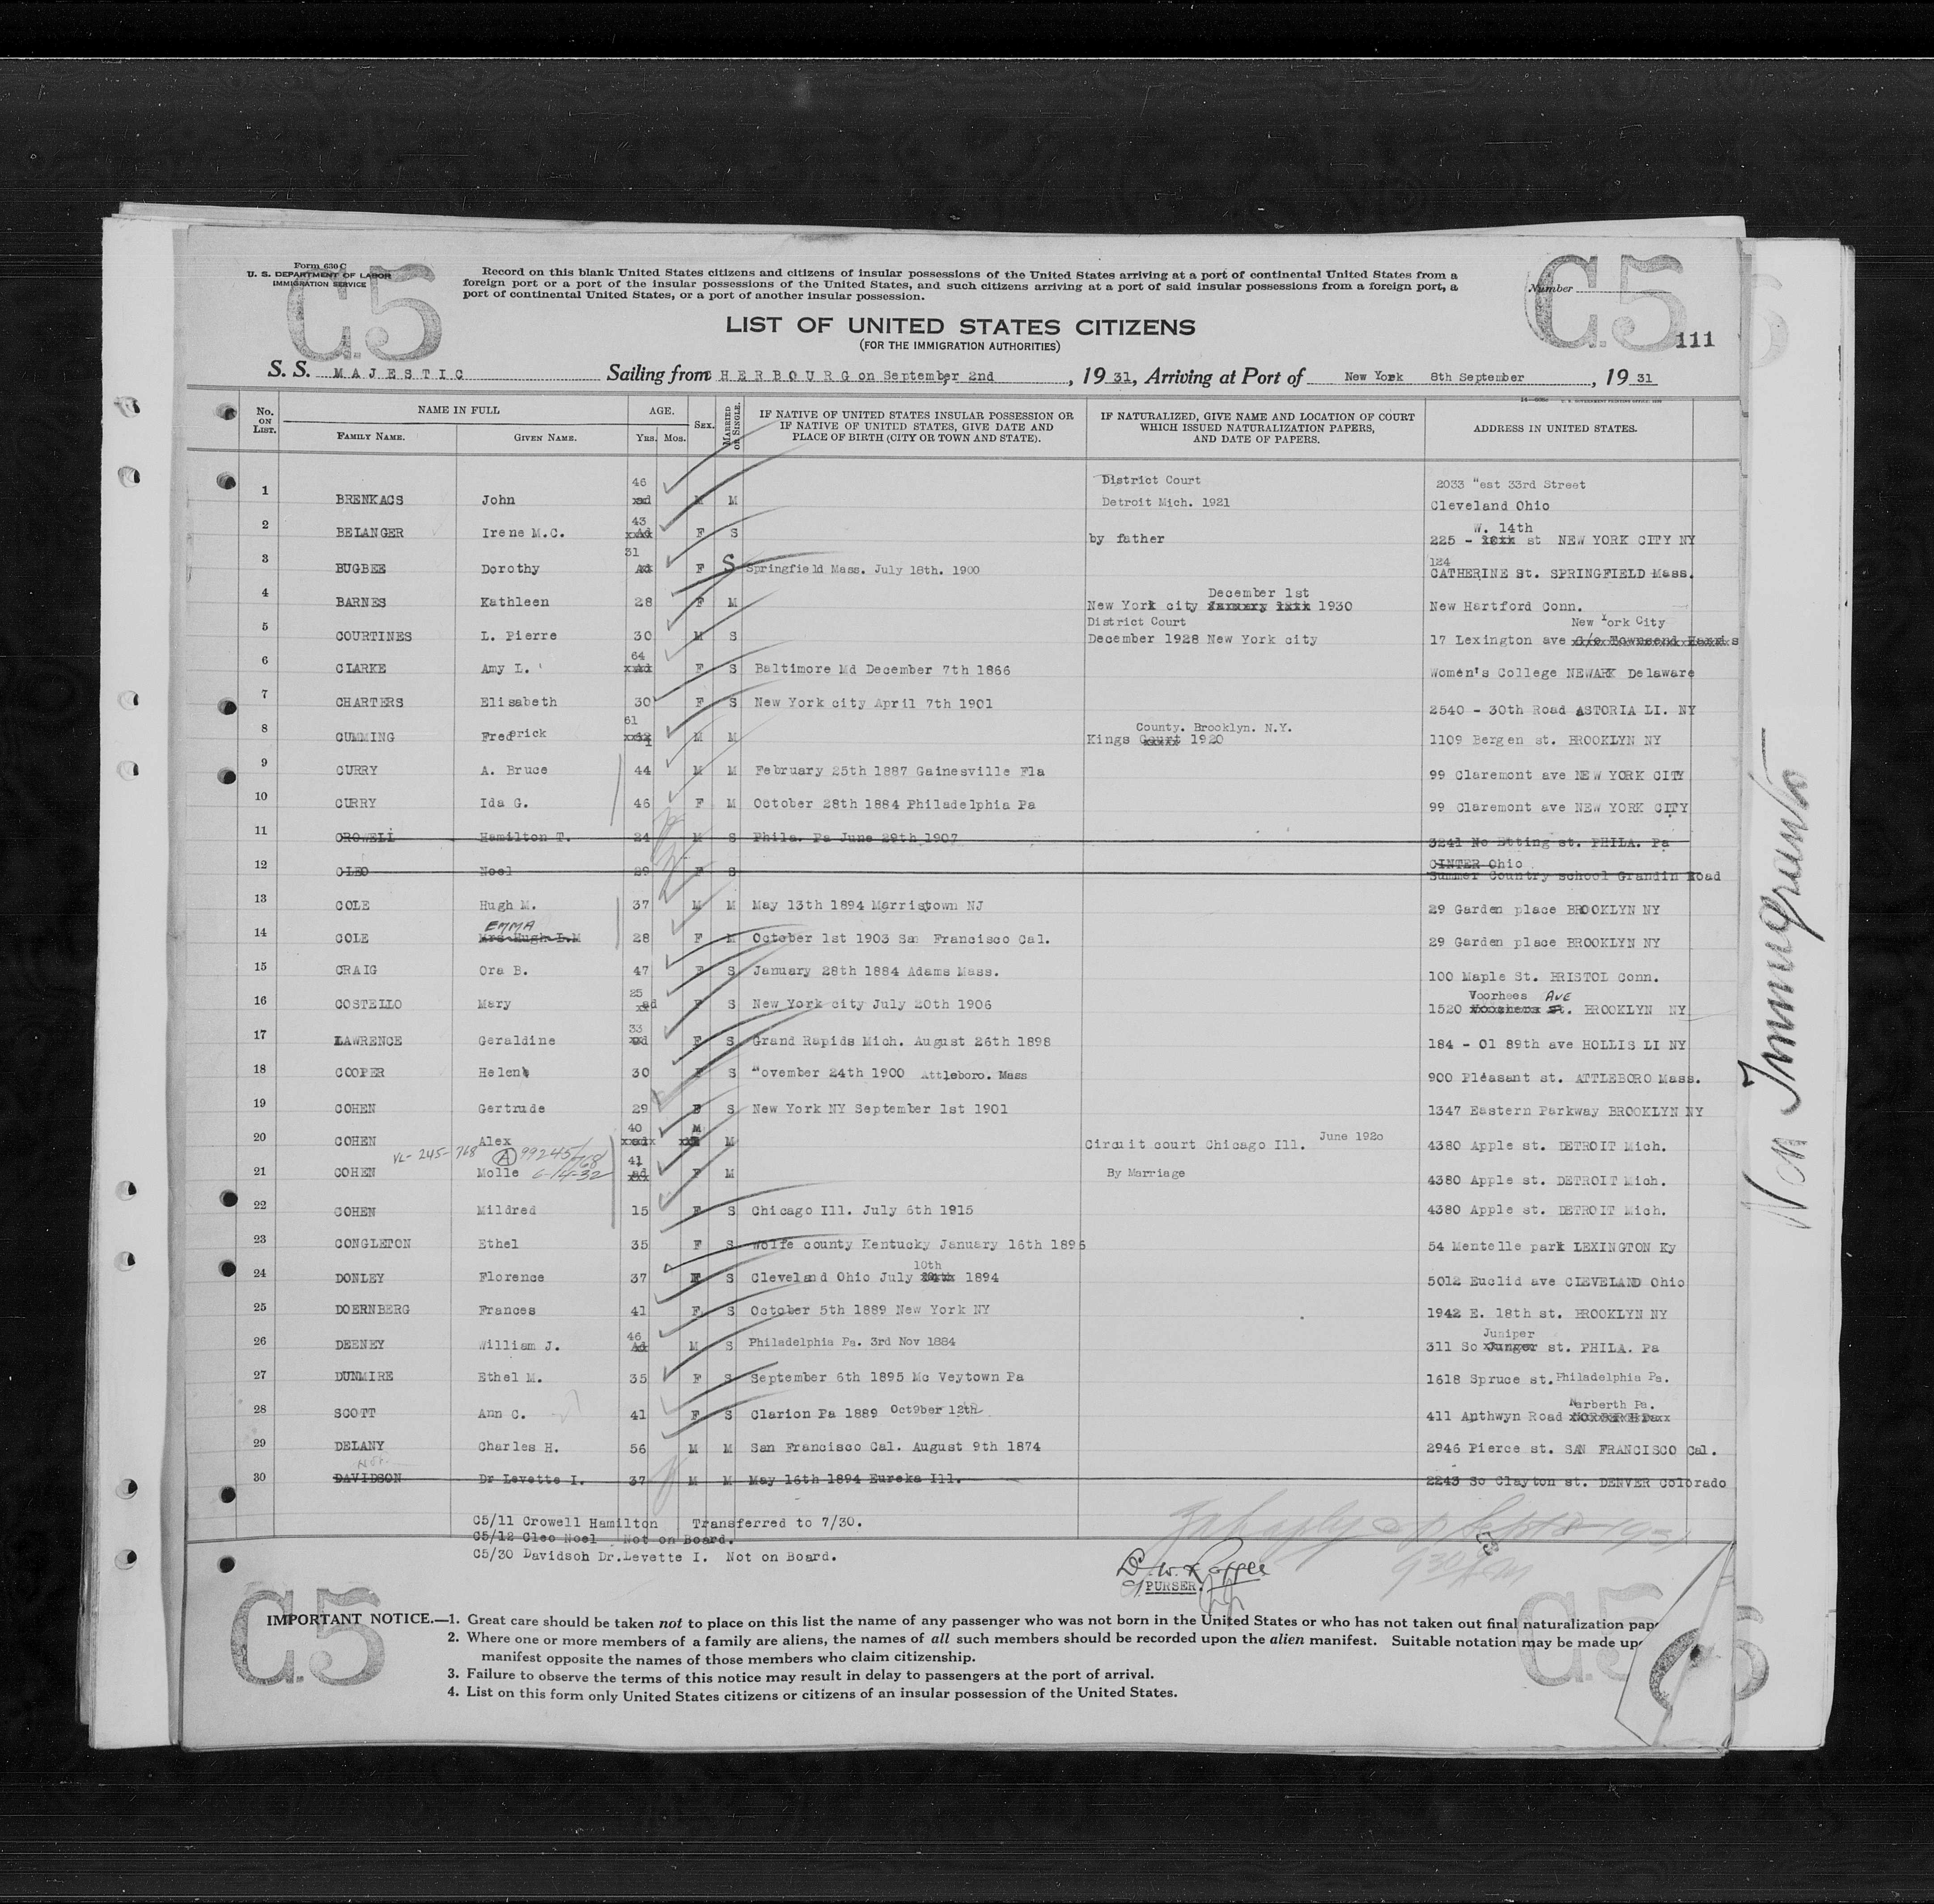 Form 630 C
U. S. DEPARTMENT OF LABOR
IMMIGRATION SERVICE
C.5
Record on this blank United States citizens and citizens of insular possessions of the United States arriving at a port of continental United States from a
foreign port or a port of the insular possessions of the United States, and such citizens arriving at a port of said insular possessions from a foreign port, a
port of continental United States, or a port of another insular possession.
C.5
Number
111
LIST OF UNITED STATES CITIZENS
(FOR THE IMMIGRATION AUTHORITIES)
S. S. MAJESTIC Sailing from CHERBOURG on September, 2nd, 19 31, Arriving at Port of New York 8th September, 19 31
No. ON LIST. NAME IN FULL FAMILY NAME. GIVEN NAME. AGE. Yrs. Mos. SEX. MARRIED OR SINGLE. IF NATIVE OF UNITED STATES INSULAR POSSESSION OR IF NATIVE OF UNITED STATES, GIVE DATE AND PLACE OF BIRTH (CITY OR TOWN AND STATE). IF NATURALIZED, GIVE NAME AND LOCATION OF COURT WHICH ISSUED NATURALIZATION PAPERS, AND DATE OF PAPERS. ADDRESS IN UNITED STATES.
1 BRENKACS John 46 M M District Court Detroit Mich. 1921 2033 "est 33rd Street Cleveland Ohio
2 BELANGER Irene M.C. 43 F S by father 225 - W. 14th st NEW YORK CITY NY
3 BUGBEE Dorothy 31 F S Springfield Mass. July 18th. 1900 124 CATHERINE St. SPRINGFIELD Mass.
4 BARNES Kathleen 28 F M New York city January December 1st 1930 New Hartford Conn.
5 COURTINES L. Pierre 30 M S District Court December 1928 New York city 17 Lexington ave c/o Townsend Harris New York City
6 CLARKE Amy L. 64 F S Baltimore Md December 7th 1866 Women's College NEWARK Delaware
7 CHARTERS Elisabeth 30 F S New York city April 7th 1901 2540 - 30th Road ASTORIA LI. NY
8 CUMMING Frederick 61 M M Kings Court County. Brooklyn. N.Y. 1920 1109 Bergen st. BROOKLYN NY
9 CURRY A. Bruce 44 M M February 25th 1887 Gainesville Fla 99 Claremont ave NEW YORK CITY
10 CURRY Ida G. 46 F M October 28th 1884 Philadelphia Pa 99 Claremont ave NEW YORK CITY
11 CROWELL Hamilton T. 24 M S Phila. Pa June 29th 1907 3241 No Etting st. PHILA. Pa
12 CLEO Noel 29 F S CINTER Ohio Summer Country school Grandin Road
13 COLE Hugh M. 37 M M May 13th 1894 Morristown NJ 29 Garden place BROOKLYN NY
14 COLE Mrs Hugh L.M EMMA 28 F M October 1st 1903 San Francisco Cal. 29 Garden place BROOKLYN NY
15 CRAIG Ora B. 47 F S January 28th 1884 Adams Mass. 100 Maple St. BRISTOL Conn.
16 COSTELLO Mary 25 F S New York city July 20th 1906 1520 Voorhees AVE BROOKLYN NY
17 LAWRENCE Geraldine 33 F S Grand Rapids Mich. August 26th 1898 184 - 01 89th ave HOLLIS LI NY
18 COOPER Helen 30 F S November 24th 1900 Attleboro. Mass 900 Pleasant st. ATTLEBORO Mass.
19 COHEN Gertrude 29 F S New York NY September 1st 1901 1347 Eastern Parkway BROOKLYN NY
20 COHEN Alex 40 M M Circuit court Chicago Ill. June 1920 4380 Apple st. DETROIT Mich.
VL-245-768 A 99245/768
21 COHEN Molle 6-14-32 41 F M By Marriage 4380 Apple st. DETROIT Mich.
22 COHEN Mildred 15 F S Chicago Ill. July 6th 1915 4380 Apple st. DETROIT Mich.
23 CONGLETON Ethel 35 F S Wolfe county Kentucky January 16th 1896 54 Mentelle park LEXINGTON Ky
24 DONLEY Florence 37 F S Cleveland Ohio July 10th 1894 5012 Euclid ave CLEVELAND Ohio
25 DOERNBERG Frances 41 F S October 5th 1889 New York NY 1942 E. 18th st. BROOKLYN NY
26 DEENEY William J. 46 M S Philadelphia Pa. 3rd Nov 1884 311 So Junger Juniper st. PHILA. Pa
27 DUNMIRE Ethel M. 35 F S September 6th 1895 Mc Veytown Pa 1618 Spruce st. Philadelphia Pa.
28 SCOTT Ann C. 41 F S Clarion Pa 1889 October 12th 411 Anthwyn Road Narberth Pa.
29 DELANY Charles H. 56 M M San Francisco Cal. August 9th 1874 2946 Pierce st. SAN FRANCISCO Cal.
30 DAVIDSON Dr Levette I. 37 M M May 16th 1894 Eureka Ill. 2243 So Clayton st. DENVER Colorado
C5/11 Crowell Hamilton Transferred to 7/30.
C5/12 Cleo Noel Not on Board.
C5/30 Davidson Dr.Levette I. Not on Board.
PURSER.
Non Immigrants
C.5
IMPORTANT NOTICE.—1. Great care should be taken not to place on this list the name of any passenger who was not born in the United States or who has not taken out final naturalization pap
2. Where one or more members of a family are aliens, the names of all such members should be recorded upon the alien manifest. Suitable notation may be made up
manifest opposite the names of those members who claim citizenship.
3. Failure to observe the terms of this notice may result in delay to passengers at the port of arrival.
4. List on this form only United States citizens or citizens of an insular possession of the United States.
C.5